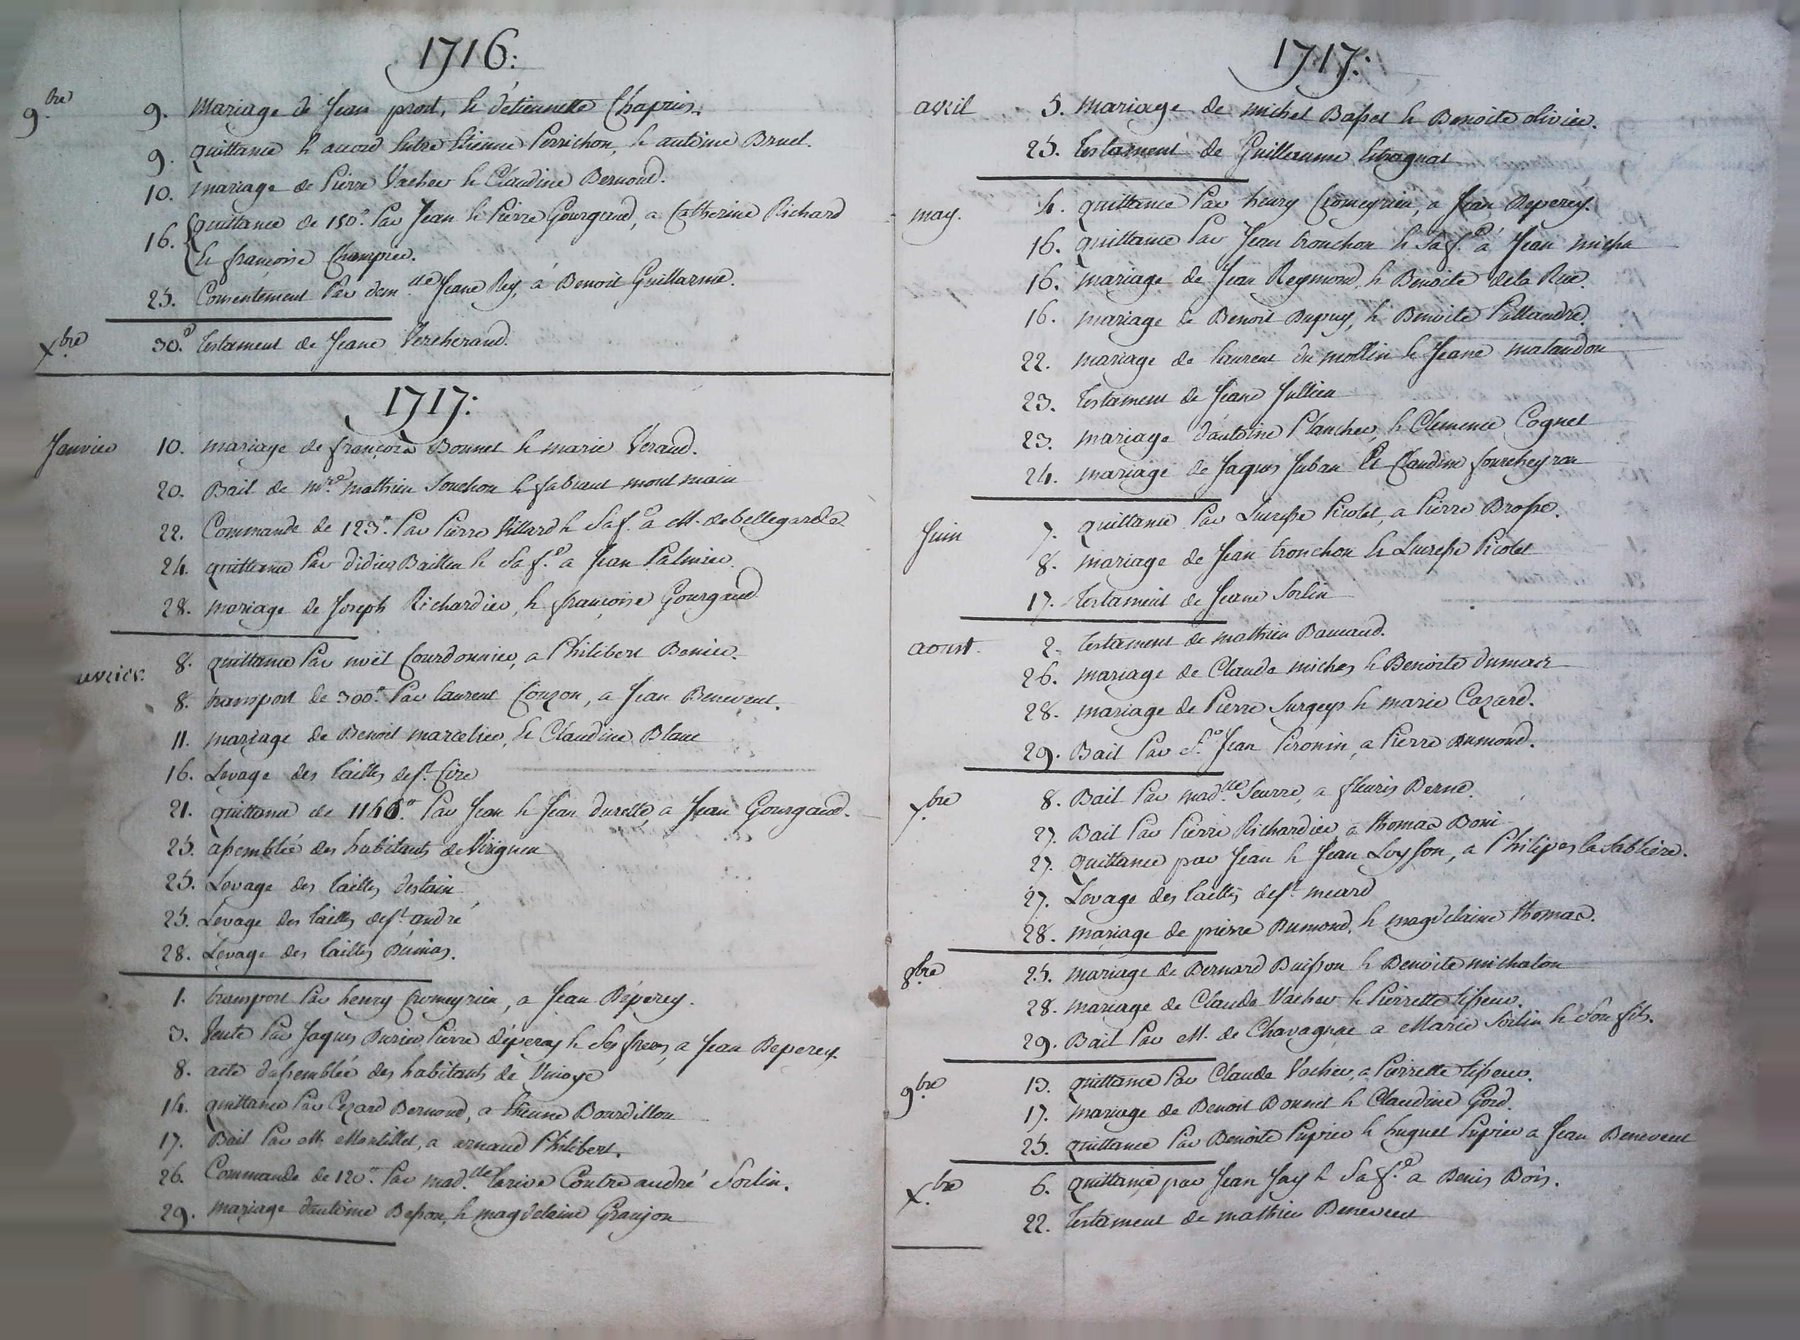 1716:
9.bre 9. Mariage de Jean prost, & d'étiennette Chapuis.
9. quittance & accord Entre Etienne Perrichon, & antoine Bruel.
10. mariage de Pierre Vacher & Claudine Bernond.
16. quittance de 150.# Par Jean & Pierre Gourgaud, a Catherine Richard
& françoise Champier.
25. Consentement Par dem.lle Jeane Rey, à Benoit Guillarme.
X.bre 30. Testament de Jeane Vercherand.
1717:
Janvier 10. mariage de françois Bonnet & marie Veraud.
20. Bail de mre mathieu Souchon & fabriant montmain
22. Commande de 123.# Par Pierre Villard & Sa f.e a M. de bellegarde
24. quittance Par didier Baillen & Sa f.e a Jean Palmier.
28. mariage de Joseph Richardier, & françoise Gourgaud
uvrier. 8. quittance Par noël Courdonnier, a Philibert Benier.
8. transport de 300.# Par Laurent Couzon, a Jean Benevent.
11. mariage de Benoit marcelier, & Claudine Blanc
16. Levage des tailles de St Cire
21. quittance de 1146.# Par Jean & Jean durelle, a Jean Gourgaud.
25. assemblée des habitants de Virigneu
25. Levage des tailles destain
25. Levage des tailles de St andré
28. Levage des tailles Dunias.
1. transport Par henry Cromeyrieu, a Jean Déperey.
3. Vente Par Jaques Durieu Pierre déperey & Ses freres, a Jean Deperey.
8. acte dassemblée des habitants de Unioye
14. quittance Par Cezard Bernond, a Etienne Bourdillon
17. Bail Par M. Montillet, a arnaud Philibert.
26. Commande de 120.# Par mad.lle Larive Contre andré Sorlin.
29. mariage dantoine Besson, & magdelaine Granjon
1717:
avril 5. mariage de michel Basset & Benoite olivier.
25. Testament de Guillaume Estragnat
may. 4. quittance Par henry Cromeyrieu, a Jean Deperey.
16. quittance Par Jean tronchon & Sa f.e à Jean micha
16. mariage de Jean Reymond, & Benoite dela Rue.
16. mariage de Benoit Dupuy, & Benoite Pallandre.
22. mariage de Laurent du mollin & Jeane matandon
23. Testament de Jeane Jullien
23. mariage d'antoine Plancher, & Clemence Cognet
24. mariage de Jaques Juban Et Claudine foucheyron
Juin 7. quittance Par Lucresse Picolet, a Pierre Brosse.
8. mariage de Jean tronchon & Lucresse Picolet
17. Testament de Jeane Sorlin
aoust 2. Testament de mathieu Bancand.
26. mariage de Claude michez & Benoite dumas
28. mariage de Pierre Surgeys & marie Cazard.
29. Bail Par S.r Jean Peronin, a Pierre Dumond.
7.bre 8. Bail Par mad.lle Seurre, a fleuris Berne.
27. Bail Par Pierre Richardier a thomas Boni
27. quittance par Jean & Jean Loyson, a Philipes la Sabliere.
27. Levage des tailles de St meard
28. mariage de pierre Dumond, & magdelaine thomas.
8.bre 25. mariage de Bernard Buisson & Benoite michalon
28. mariage de Claude Vacher & Pierrette tisseur.
29. Bail Par M. de Chavagnac a Marie Sorlin & Son fils.
9.bre 13. quittance Par Claude Vacher, a Pierrette tisseur.
17. mariage de Benoit Bonnet & Claudine Gord.
25. quittance Par Benoite Pupier & huguet Pupier a Jean Benevent
X.bre 6. quittance par Jean Jay & Sa f.e a Denis Bois.
22. Testament de mathieu Benevent